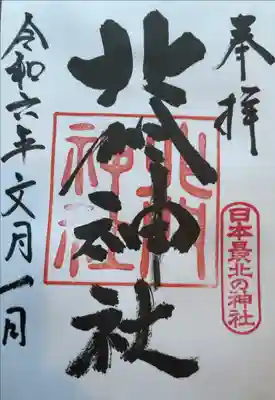 奉拝
日本最北の神社
北門神社
北門
神社
令和六年文月一日